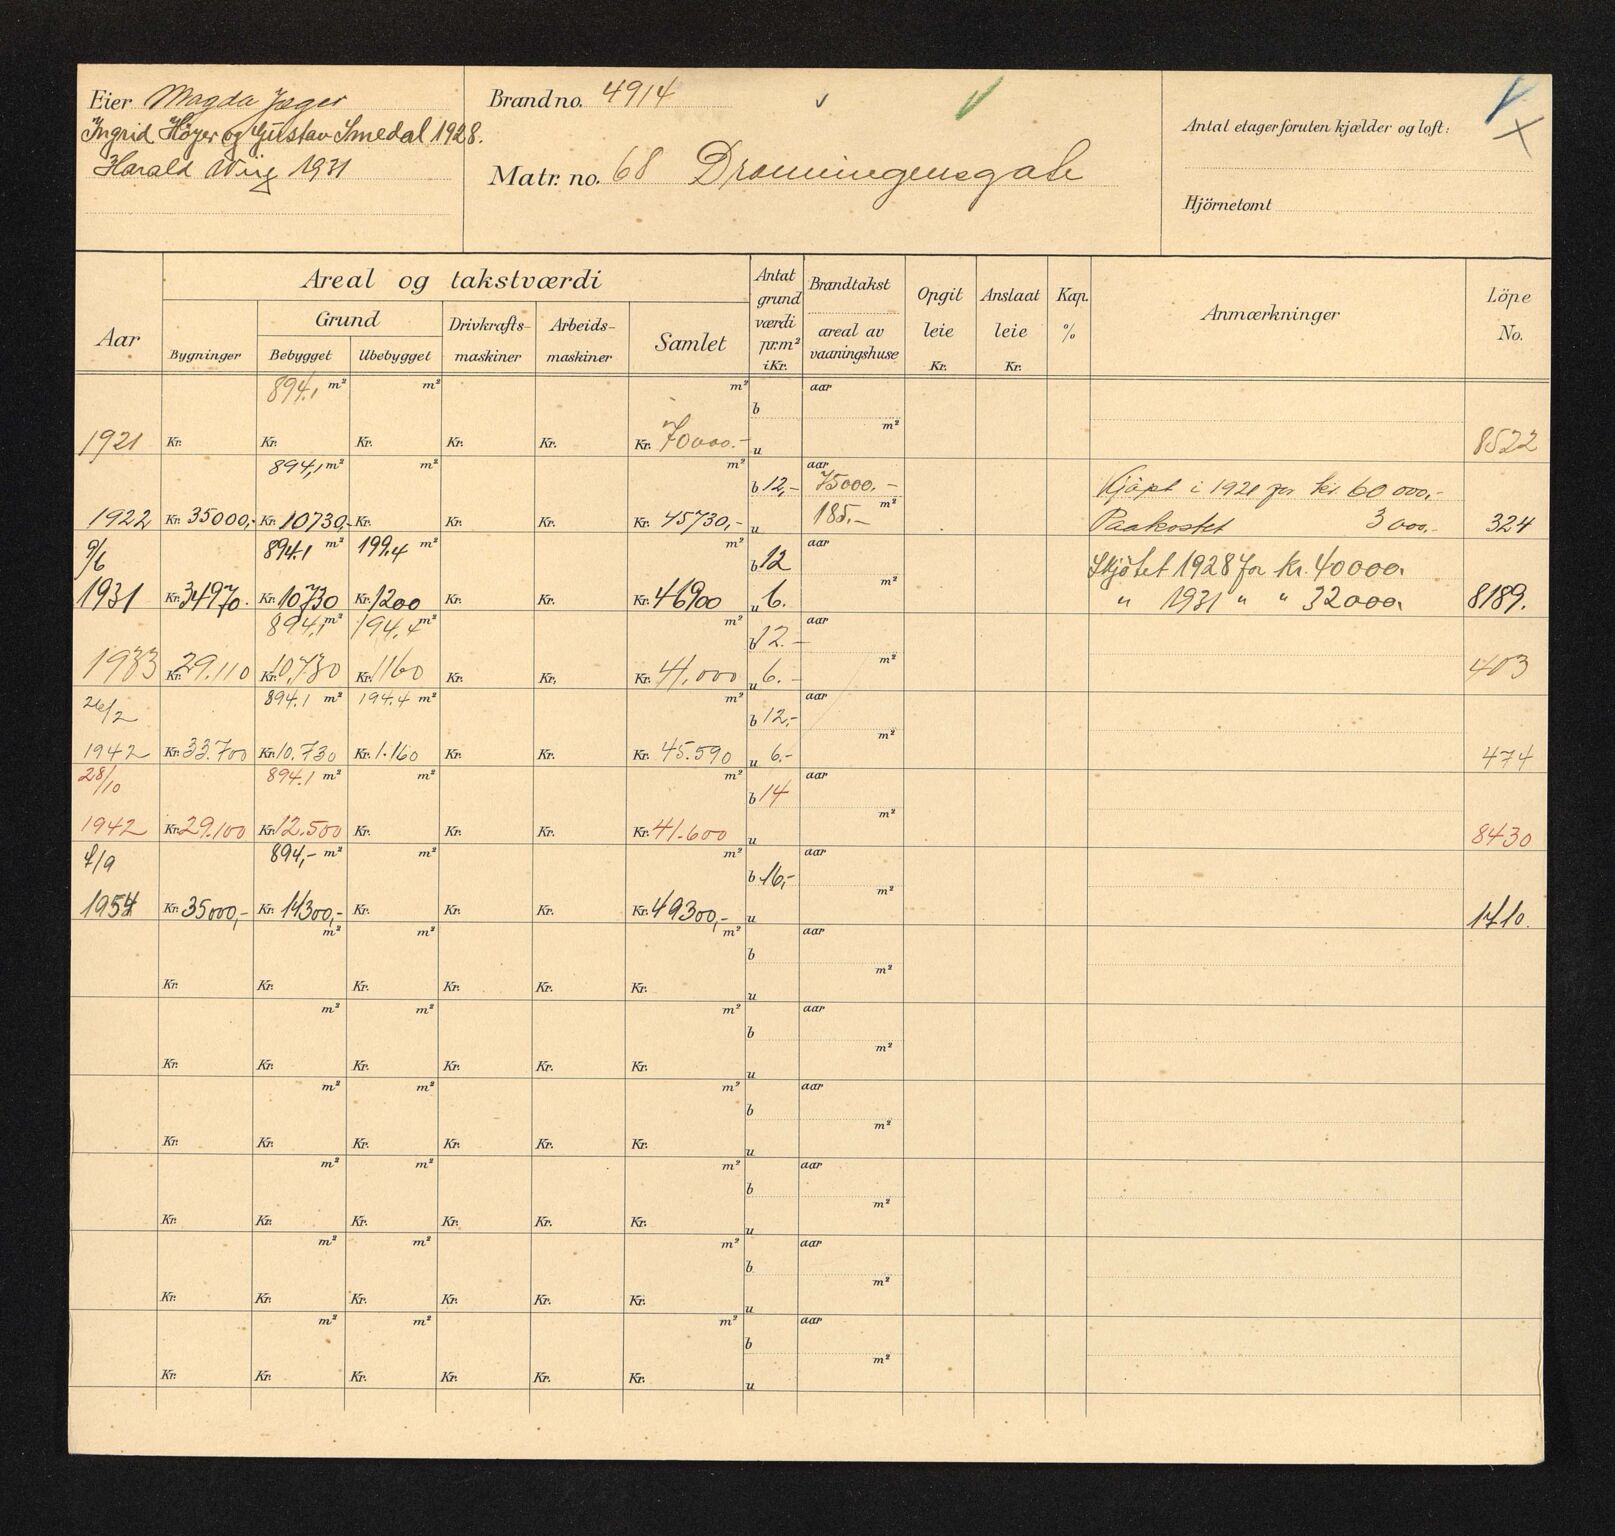 Eier Magda Jæger
Ingrid Höyer og Gustav Smedal 1928.
Harald Wiig 1931
Brand no. 4914
Matr. no. 68 Dronningensgate
Antal etager foruten kjælder og loft:
Hjörnetomt
Aar
Areal og takstværdi
Bygninger
Grund
Bebygget
Ubebygget
Drivkrafts-maskiner
Arbeids-maskiner
Samlet
Antat grund værdi pr.m² i Kr.
Brandtakst
areal av vaaningshuse
Opgit leie Kr.
Anslaat leie Kr.
Kap. %
Anmærkninger
Löpe No.
894,1 m² m² m² b aar
1921 Kr. Kr. Kr. Kr. Kr. Kr. 70000.- u m² 8522
894,1 m² m² m² b 12,- aar 75000.- Kjöpt i 1921 for kr. 60 000,-
1922 Kr. 35000,- Kr. 10730,- Kr. Kr. Kr. Kr. 45730,- u 185.- m² Paakostet 3 000.- 324
9/6 894.1 m² 199.4 m² m² b 12 aar Skjötet 1928 for kr. 40000.
1931 Kr. 34970. Kr. 10730 Kr. 1200 Kr. Kr. Kr. 46900 u 6. m² " 1931 " " 32000. 8189.
894,1 m² 194,4 m² m² b 12.- aar
1933 Kr. 29.110 Kr. 10,730 Kr. 1160 Kr. Kr. Kr. 41.000 u 6.- m² 403
26/2 894.1 m² 194.4 m² m² b 12,- aar
1942 Kr. 33.700 Kr. 10.730 Kr. 1.160 Kr. Kr. Kr. 45.590 u 6.- m² 474
28/10 894.1 m² m² m² b 14 aar
1942 Kr. 29.100 Kr. 12.500 Kr. Kr. Kr. Kr. 41.600 u m² 8430
894,- m² m² m² b 16,- aar
1954 Kr. 35000,- Kr. 14300,- Kr. Kr. Kr. Kr. 49300,- u m² 1710.
m² m² m² b aar
Kr. Kr. Kr. Kr. Kr. Kr. u m²
m² m² b aar
Kr. Kr. Kr. Kr. Kr. Kr. u m²
m² m² m² b aar
Kr. Kr. Kr. Kr. Kr. Kr. u m²
m² m² m² b aar
Kr. Kr. Kr. Kr. Kr. Kr. u m²
m² m² m² b aar
Kr. Kr. Kr. Kr. Kr. Kr. u m²
m² m² m² b aar
Kr. Kr. Kr. Kr. Kr. Kr. u m²